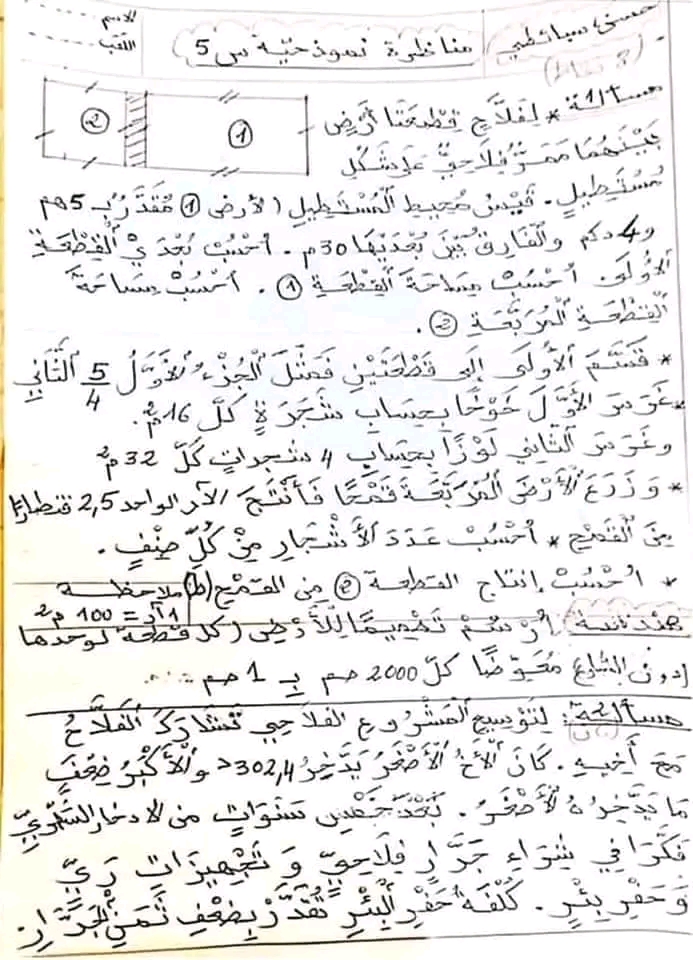 الاسم
اللقب
مناظرة نموذجية س 5
مسألة 1 * لِفَلَّاحٍ قِطْعَتَا أَرْضٍ
بَيْنَهُمَا مَمَرٌّ فِلَاحِيٌّ عَلَى شَكْلِ
② ①
مُسْتَطِيلٍ. قَيْسُ مُحِيطِ الْمُسْتَطِيلِ (الأرض ① مُقَدَّرٌ بِـ 5 هم
و 4 دكم والْفَارِقُ بَيْنَ بُعْدَيْهَا 30 م. أحْسُبُ بُعْدَيْ الْقِطْعَةِ
الأُولَى. أحْسُبُ مِسَاحَةَ الْقِطْعَةِ ①. أحْسُبُ مِسَاحَةَ
الْقِطْعَةِ الْمُرَبَّعَةِ ②.
* قَسَّمَ الأُولَى إِلَى قِطْعَتَيْنِ فَمَثَّلَ الْجُزْءُ الأَوَّلُ 5/4 الثَّانِي
* غَرَسَ الأَوَّلَ خَوْخًا بِحِسَابِ شَجَرَةٍ كُلَّ 16 م².
وغَرَسَ الثَّانِي لَوْزًا بِحِسَابِ 4 شجراتٍ كُلَّ 32 م²
* وَزَرَعَ الأَرْضَ الْمُرَبَّعَةَ قَمْحًا فَأَنْتَجَ الآر الواحد 2,5 قنطارًا
مِنَ الْقَمْحِ * أحْسُبُ عَدَدَ الأَشْجَارِ مِنْ كُلِّ صِنْفٍ.
* احْسُبُ إنتاج القطعة ② من القمح (ط)
ملاحظة
1 آر = 100 م²
هندسة: أرْسُمُ تَصْمِيمًا لِلأَرْضِ (كل قطعة لوحدها
دون الشارع مُعَوِّضًا كلّ 2000 صم بِـ 1 صم
مسألة 2: لِتَوْسِيعِ الْمَشْرُوعِ الفلاحي تَشَارَكَ الْفَلَّاحُ
مَعَ أَخِيهِ. كَانَ الأَخُ الأَصْغَرُ يَدَّخِرُ 302,4 د والأَكْبَرُ ضِعْفَ
مَا يَدَّخِرُهُ الأَصْغَرُ. بَعْدَ خَمْسِ سَنَوَاتٍ من الادخار الشَّهْرِيِّ
فَكَّرَا فِي شِرَاءِ جَرَّارٍ فِلَاحِيٍّ وَ تَجْهِيزَاتِ رَيٍّ
وَحَفْرِ بِئْرٍ. كُلْفَةُ حَفْرِ الْبِئْرِ تُقَدَّرُ بِضِعْفِ ثَمَنِ الْجَرَّارِ.